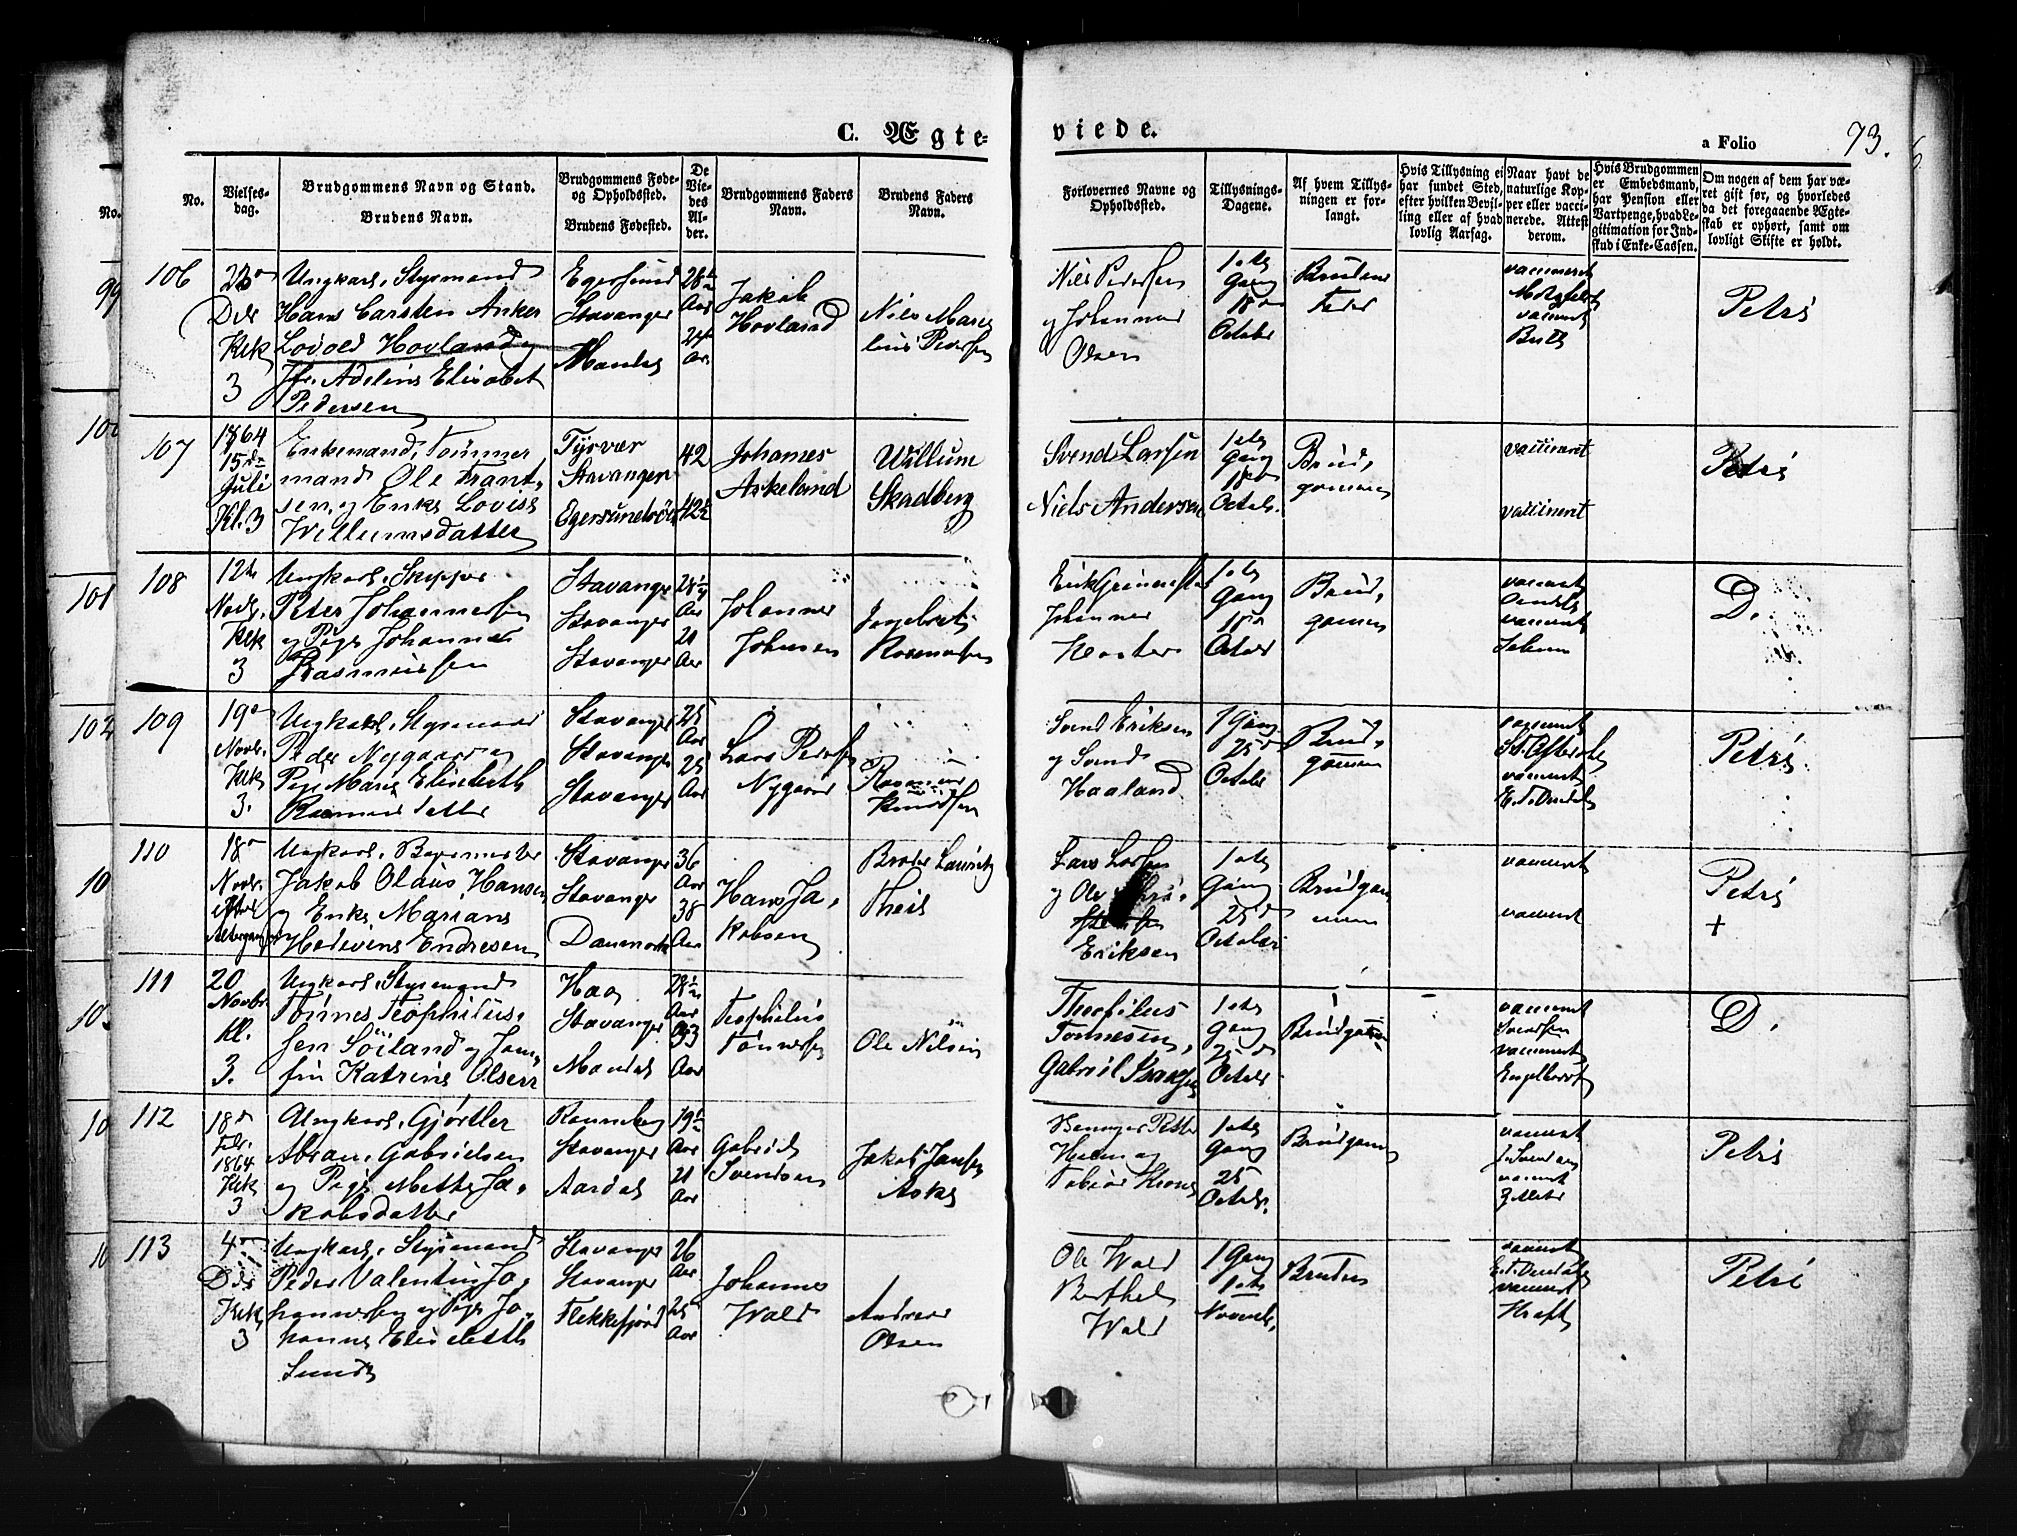 C. Ægte-
viede.
a Folio 73.
No.
Vielses-
dag.
Brudgommens Navn og Stand.
Brudens Navn.
Brudgommens Føde-
og Opholdssted.
Brudens Fødested.
De
Vie-
des
Al-
der.
Brudgommens Faders
Navn.
Brudens Faders
Navn.
Forlovernes Navne og
Opholdssted.
Tillysnings-
Dagene.
Af hvem Tillys-
ningen er for-
langt.
Hvis Tillysning ei
har fundet Sted,
efter hvilken Bevil-
ling eller af hvad
lovlig Aarsag.
Naar havt de
naturlige Kop-
per eller vacci-
nerede. Attest
derom.
Hvis Brudgommen
er Embedsmand,
har Pension eller
Vartpenge, hvad Le-
gitimation for Ind-
skud i Enke-Cassen.
Om nogen af dem har væ-
ret gift før, og hvorledes
da det foregaaende Ægte-
skab er ophørt, samt om
lovligt Skifte er holdt.
106
Dcbr
Klk
3
Ungkarl, Styrmand
Hans Carsten Anker
Lovold Hovland og
Jfr. Adeline Elisabet
Pedersen
Egersund
Stavanger
Mandal
Aar
24
Jakob
Hovland
Nils Marce
lius Pedersen
Niels Pedersen
og Johannes
Olsen
1ste
Gang
18de
October
Brudens
Fader
vaccineret
vaccineret
Petri
107
1864
15de
Juli
Kl. 3
Enkemand, Tømmer
mand Ole Frant,
sen og Enke Lovise
Willumsdatter
Tysvær
Stavanger
Egersundsøen
42
42½
Johannes
Askeland
Willum
Skadberg
Svend Larsen
Niels Andersen
1ste
Gang
18de
Octobr.
Brud,
gommen
vaccineret
vaccineret
Petri
108
12te
Novbr.
Klk
3
Ungkarl, Skipper
Peter Johannessen
og Pige Johanne
Rasmussen
Stavanger
Stavanger
Stavanger
Aar
21
Aar
Johannes
Johnsen
Ingebret
Rasmussen
Johannes
1ste
Gang
18de
Octobr
Brud,
gommen
vaccineret
vaccineret
D.
109
19de
Novbr.
Klk
3.
Ungkarl, Styrmand
Peder Nygaard og
Pige Marie Elisebeth
Rasmusdatter
Stavanger
Stavanger
Stavanger
25
Aar
25
Aar
Lars Pedersen
Nygaard
Rasmus
Knudsen
Svend Eriksen
og Svend
Haaland
1 Gang
25de
October
Brud,
gommen
vaccineret
vaccineret
Petri
110
18de
Novbr.
efter
Ungkarl, Bagermester
Jakob Olaus Hansen
og Enke Mariane
Hedevine Endresen
Stavanger
Stavanger
Danmark
36
Aar
38
Aar
Hans Ja,
kobsen
Broder Lauritz
Theil
Lars Larsen
og Ole
Eriksen
1ste
Gang
25de
October
Brudgom
men
vaccineret
vaccineret
Petri
+
111
20
Novbr.
Kl.
3.
Ungkarl, Styrmand
Tönnes Teophilus,
sen Söiland og Jom,
fru Katrine Olsen
Haa
Stavanger
Mandal
Aar
Aar
Teophilus
Tønnesen
Ole Nilsen
Theofilus
Tonnesen,
Gabriel Isaksen
1ste
Gang
25de
Octobr
Brudgommen
vaccineret
vaccineret
D.
112
18de
Febr.
1864
Klk
3
Ungkarl, Gjørtler
Abram Gabrielsen
og Pige Mette Ja,
kobsdatter
Rennesøy
Stavanger
Aardal
Aar
21
Aar
Gabriel
Svendsen
Jakob Jansen
Aske
1ste
Gang
25
Octobr.
Brudgom
vaccineret
vaccineret
Petri
113
4de
Dcbr
Klk
3
Ungkarl, Styrmand
Peder Valentin Jo,
hannessen og Pige Jo,
hanne Elisebeth
Lunde
Stavanger
Stavanger
Flekkefjord
26
Aar
25
Aar
Johannes
Wald
Andreas
Olsen
Ole Wald
Berthel
Wald
1 Gang
1ste
Novembr.
Bruden
vaccineret
vaccineret
Kraft
Petri